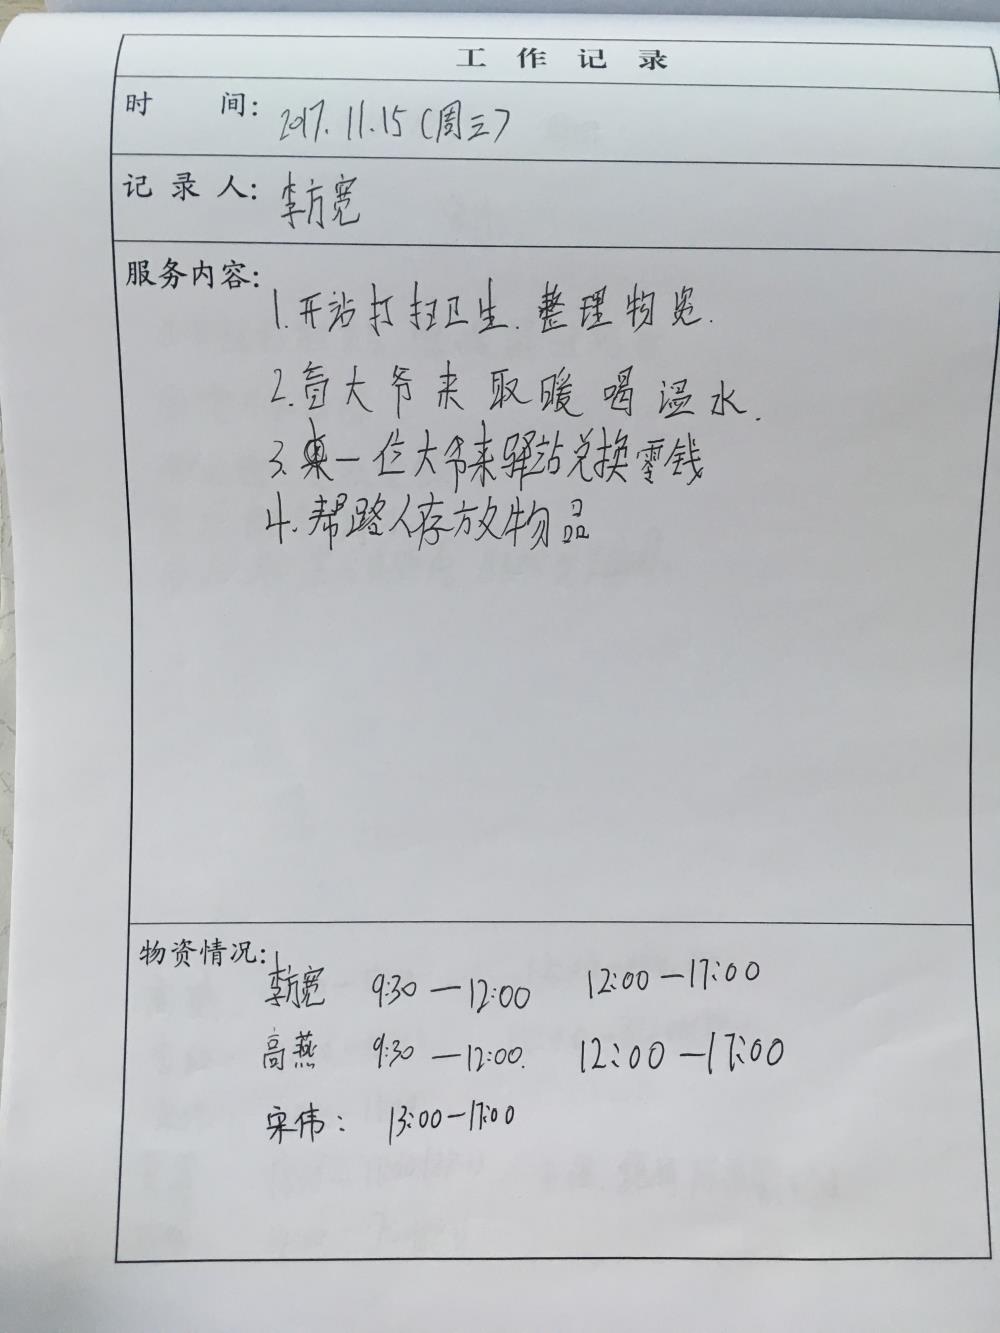 工作记录
时间: 2017.11.15(周三)
记录人: 李方宽
服务内容:
1.开站打扫卫生.整理物览.
2.盲大爷来取暖喝温水.
3.一位大爷来驿站兑换零钱
4.帮路人存放物品
物资情况:
李方宽 9:30—12:00 12:00—17:00
高燕 9:30—12:00. 12:00—17:00
宋伟: 13:00—17:00